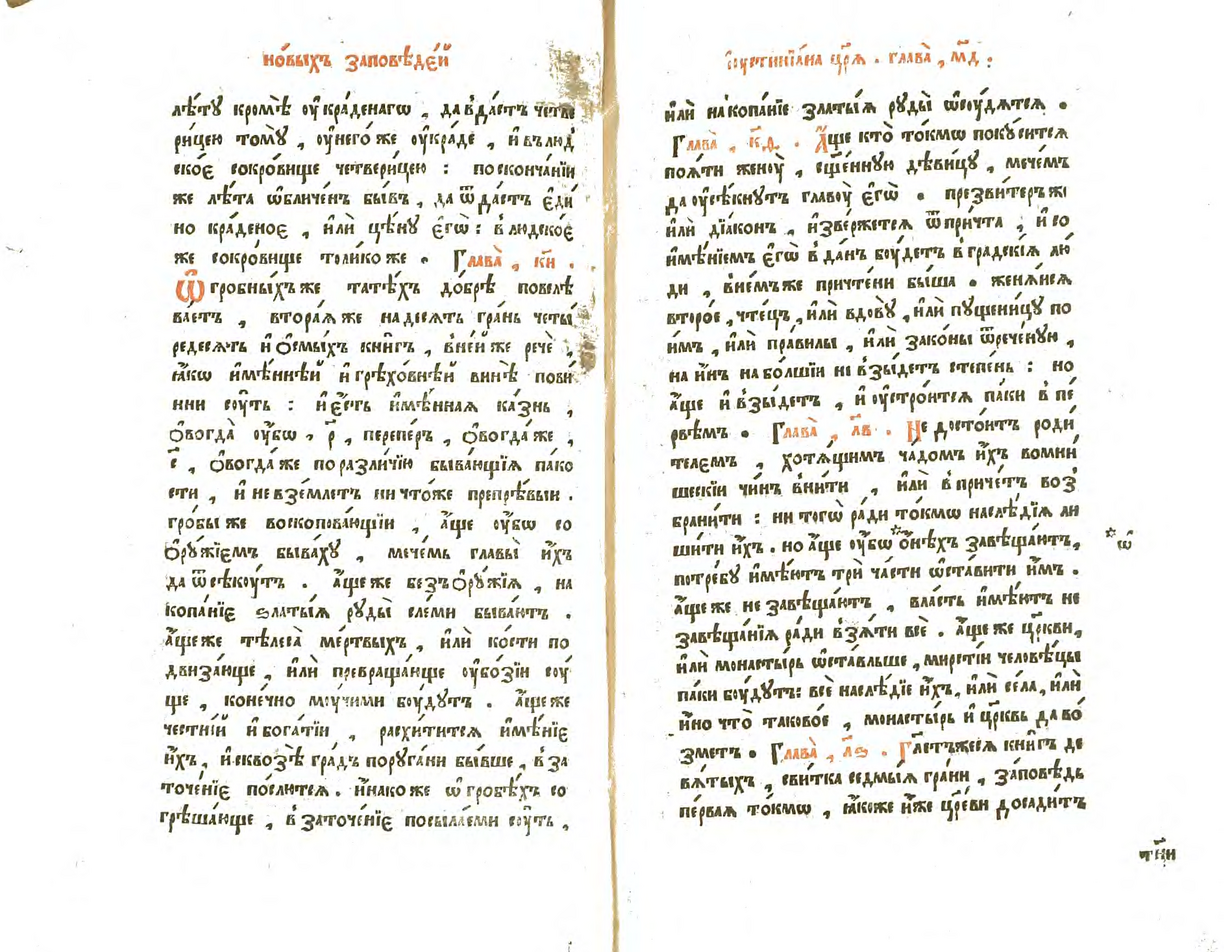 но́выхъ за́повѣде́й
лѣ́тꙋ кромѣ̀ оу҆кра́денагѡ , да в̾да́стъ четве
ри́цею томꙋ̀ , оу҆него́ же оу҆кра́де , и҆ въ люд̾
ско́е сокро́вище четвери́цею : по сконча́нїи
же лѣ́та ѡ҆бличе́нъ бы́въ , да ѿда́стъ є҆ди
но кра́деное , и҆лѝ цѣ́нꙋ є҆гѡ̀ : в людско́е
же сокро́вище толи́ко же . Глава̀ , к҃и .
Ѡ҆ гро́бныхъ же та́техъ до́брѣ повелѣ
ва́етъ , втора́ѧ же на́десѧть гра́нь четы́
редесѧтъ и҆ ѻ҆смы́хъ кни́гъ , в̾не́й же речѐ ,
ꙗ҆́кѡ и҆мѣ́ннѣй и҆ грѣхо́внѣй винѣ̀ пови́
нни сꙋ́ть : и҆ є҆́сть и҆мѣ́ннаѧ ка́знь ,
ѻ҆вогда̀ оу҆́бѡ , р҃ , перепе́ръ , ѻ҆вогда́ же ,
с҃ , ѻ҆вогда́ же по разли́чїю быва́ющїѧ пако
сти , и҆ не в̾зе́млетъ ничто́же препрѣ́выи .
гро́бы же воскопова́ющїи , а҆́ще оу҆́бѡ со
ѻ҆рꙋ́жїемъ быва́хꙋ , мече́мь главы̀ и҆́хъ
да ѿсѣкꙋ́тъ . а҆́ще же безъ ѻ҆рꙋ́жїѧ , на
копа́нїе ѕлаты́ѧ рꙋды̀ сле́ми быва́ютъ .
а҆́ще же тѣлеса̀ ме́ртвыхъ , и҆лѝ ко́сти по
двиза́юще , и҆лѝ превраща́юще оу҆бо́зїи сꙋ́
ще , коне́чно мꙋ́чими бꙋ́дꙋтъ . а҆́ще же
честні́и и҆ бога́тїи , расхи́титсѧ и҆мѣ́нїе
и҆́хъ , и҆ сквозѣ̀ гра́дъ порꙋ́гани бы́вше , в за
точе́нїе по́слютсѧ . и҆на́ко же ѡ҆ гробѣ́хъ со
грѣша́юще , в заточе́нїе посыла́еми сꙋ́ть ,
і҆ꙋстинїа́на цр҃ѧ̀ . глава̀ , м҃д .
и҆лѝ на копа́нїе златы́ѧ рꙋды̀ ѡ҆сꙋ́дѧтсѧ .
Глава̀ , к҃д . А҆́ще кто̀ то́кмѡ покꙋ́ситсѧ
поѧ́ти женꙋ̀ , сщ҃е́ннꙋю дѣви́цꙋ , мече́мъ
да оу҆сѣ́кнꙋтъ главꙋ̀ є҆гѡ̀ . презви́теръ жѐ
и҆лѝ дїа́конъ , и҆зве́ржетсѧ ѿ при́чта , и҆ со
и҆мѣ́нїемъ є҆гѡ̀ в да́нь бꙋ́детъ в гра́дскїѧ лю́
ди , в̾не́мъ же причте́ни бы́ша . женѧ́исѧ
второ́е , чте́цъ , и҆лѝ вдовꙋ̀ , и҆лѝ пꙋще́ницꙋ по
и҆́мъ , и҆лѝ пра́вилы , и҆лѝ зако́ны ѿрече́нꙋю ,
на и҆́нъ на бо́лшїи не в̾зы́детъ сте́пень : но
а҆́ще и҆ в̾зы́детъ , и҆ оу҆стро́итсѧ па́ки в пе́
рвѣмъ . Глава̀ , л҃в . Не досто́итъ роди́
телемъ , хотѧ́щимъ ча́домъ и҆́хъ во мни́
шескїи чи́нъ вни́ти , и҆лѝ в при́четъ воз̾
брани́ти : ни тогѡ̀ ра́ди то́кмѡ наслѣ́дїѧ ли
ши́ти и҆́хъ . но а҆́ще оу҆́бѡ * ѻ҆нѣ́хъ завѣща́ютъ ,
* ѡ҆
потре́бꙋ и҆мꙋ́тъ трѝ ча́сти ѡ҆ста́вити и҆́мъ .
а҆́ще же не завѣща́ютъ , вла́сть и҆мꙋ́тъ не
завѣща́нїѧ ра́ди взѧ́ти всѐ . а҆́ще же цр҃кви ,
и҆лѝ монасты́рь ѡ҆ста́вльше , мирстїи человѣ́цы
па́ки бꙋ́дꙋтъ : всѐ наслѣ́дїе и҆́хъ , и҆лѝ се́ла , и҆лѝ
и҆́но что̀ таково́е , монасты́рь и҆ цр҃квь да во́
зметъ . Глава̀ , л҃ѕ . Гл҃етъ же сѧ кни́гъ де
вѧ́тыхъ , сви́тка седмы́ѧ гра́ни , за́повѣдь
пе́рваѧ то́кмѡ , ꙗ҆́коже и҆́же цр҃еви досади́тъ